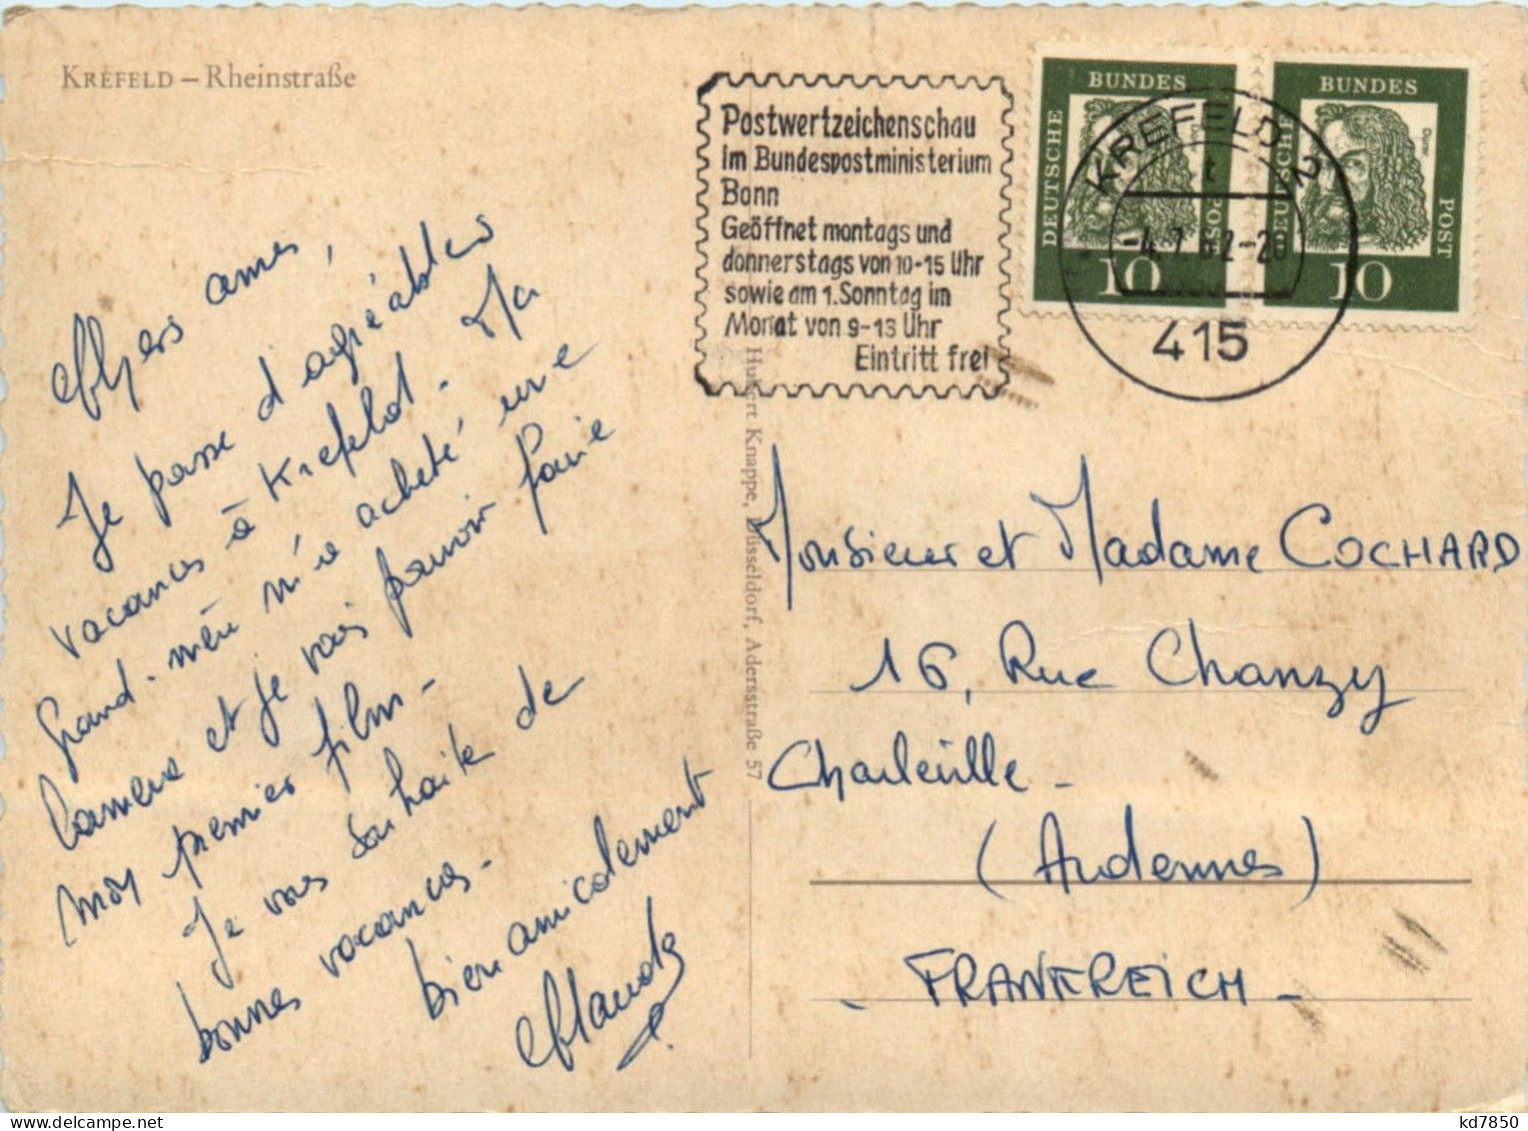 KREFELD – Rheinstraße
Chers amis,
Je passe d'agréables
vacances à Krefeld. Ma
grand-mère m'a acheté une
caméra et je vais pouvoir faire
mon premier film -
Je vous souhaite de
bonnes vacances -
bien amicalement
Claude
Hubert Knappe, Düsseldorf, Adersstraße 57
Postwertzeichenschau
im Bundespostministerium
Bonn
Geöffnet montags und
donnerstags von 10-15 Uhr
sowie am 1. Sonntag im
Monat von 9-13 Uhr
Eintritt frei
DEUTSCHE
BUNDES
POST
10
KREFELD 2
t
-4.7.62-20
415
DEUTSCHE
BUNDES
POST
Dürer
10
Monsieur et Madame COCHARD
16, Rue Chanzy
Charleville -
(Ardennes)
- FRANKREICH -
kd7850